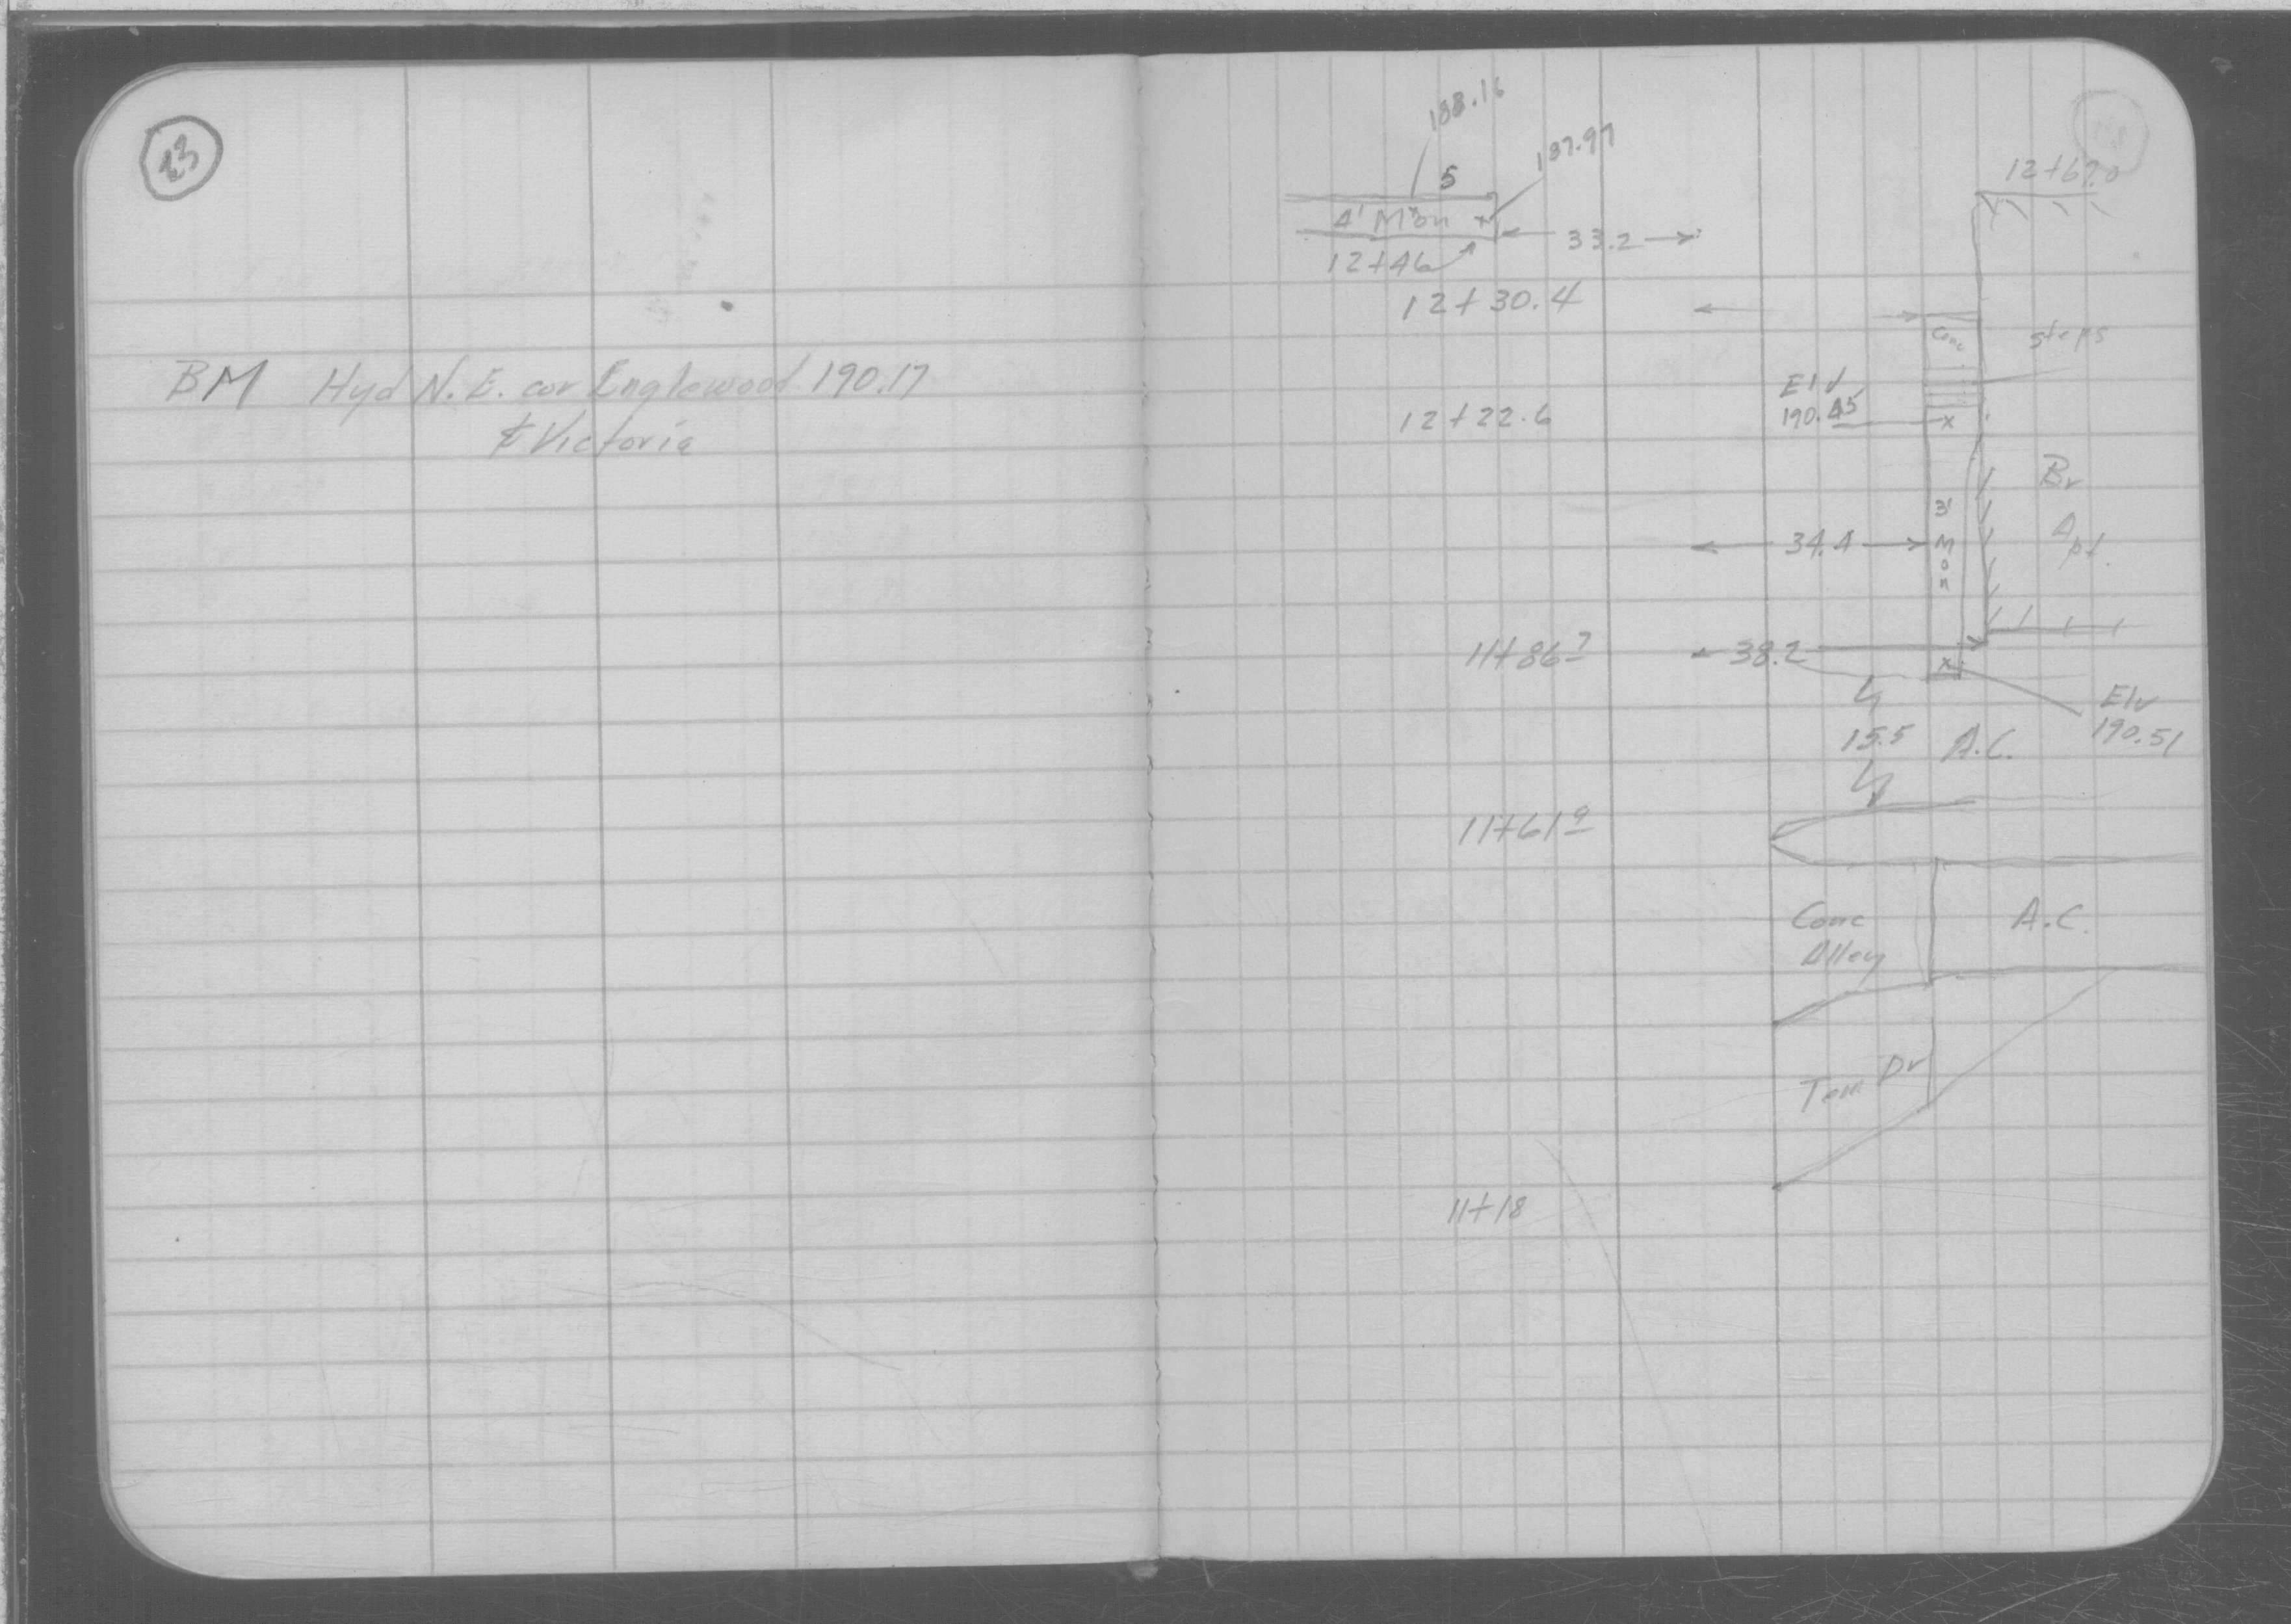 23
BM Hyd N.E. cor Englewood 190.17
& Victoria
188.16
187.97
5
4' Mon
33.2
12+46
12+30.4
12+67.0
Conc
steps
Elv
190.45
12+22.6
Br
Apt.
3'
Mon
34.4
11+86 7
38.2
Elv
190.51
15.5
A.C.
11+61 9
Conc
Alley
A.C.
Dr
11+18